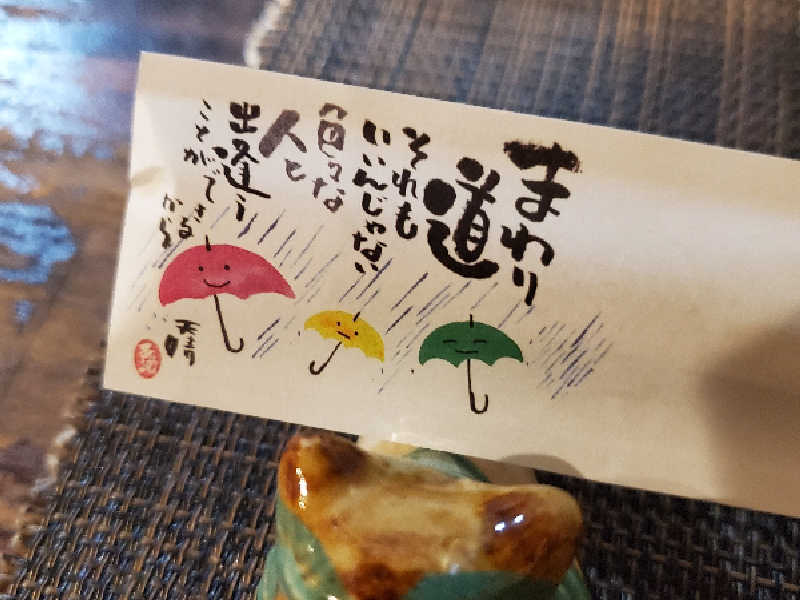 まわり
道
それも
いいんじゃない
色々な
人と
出逢う
ことができる
から
晴